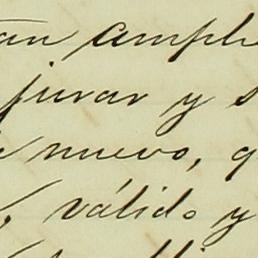 tan ampli
jurar y s
nuevo, q
válido y